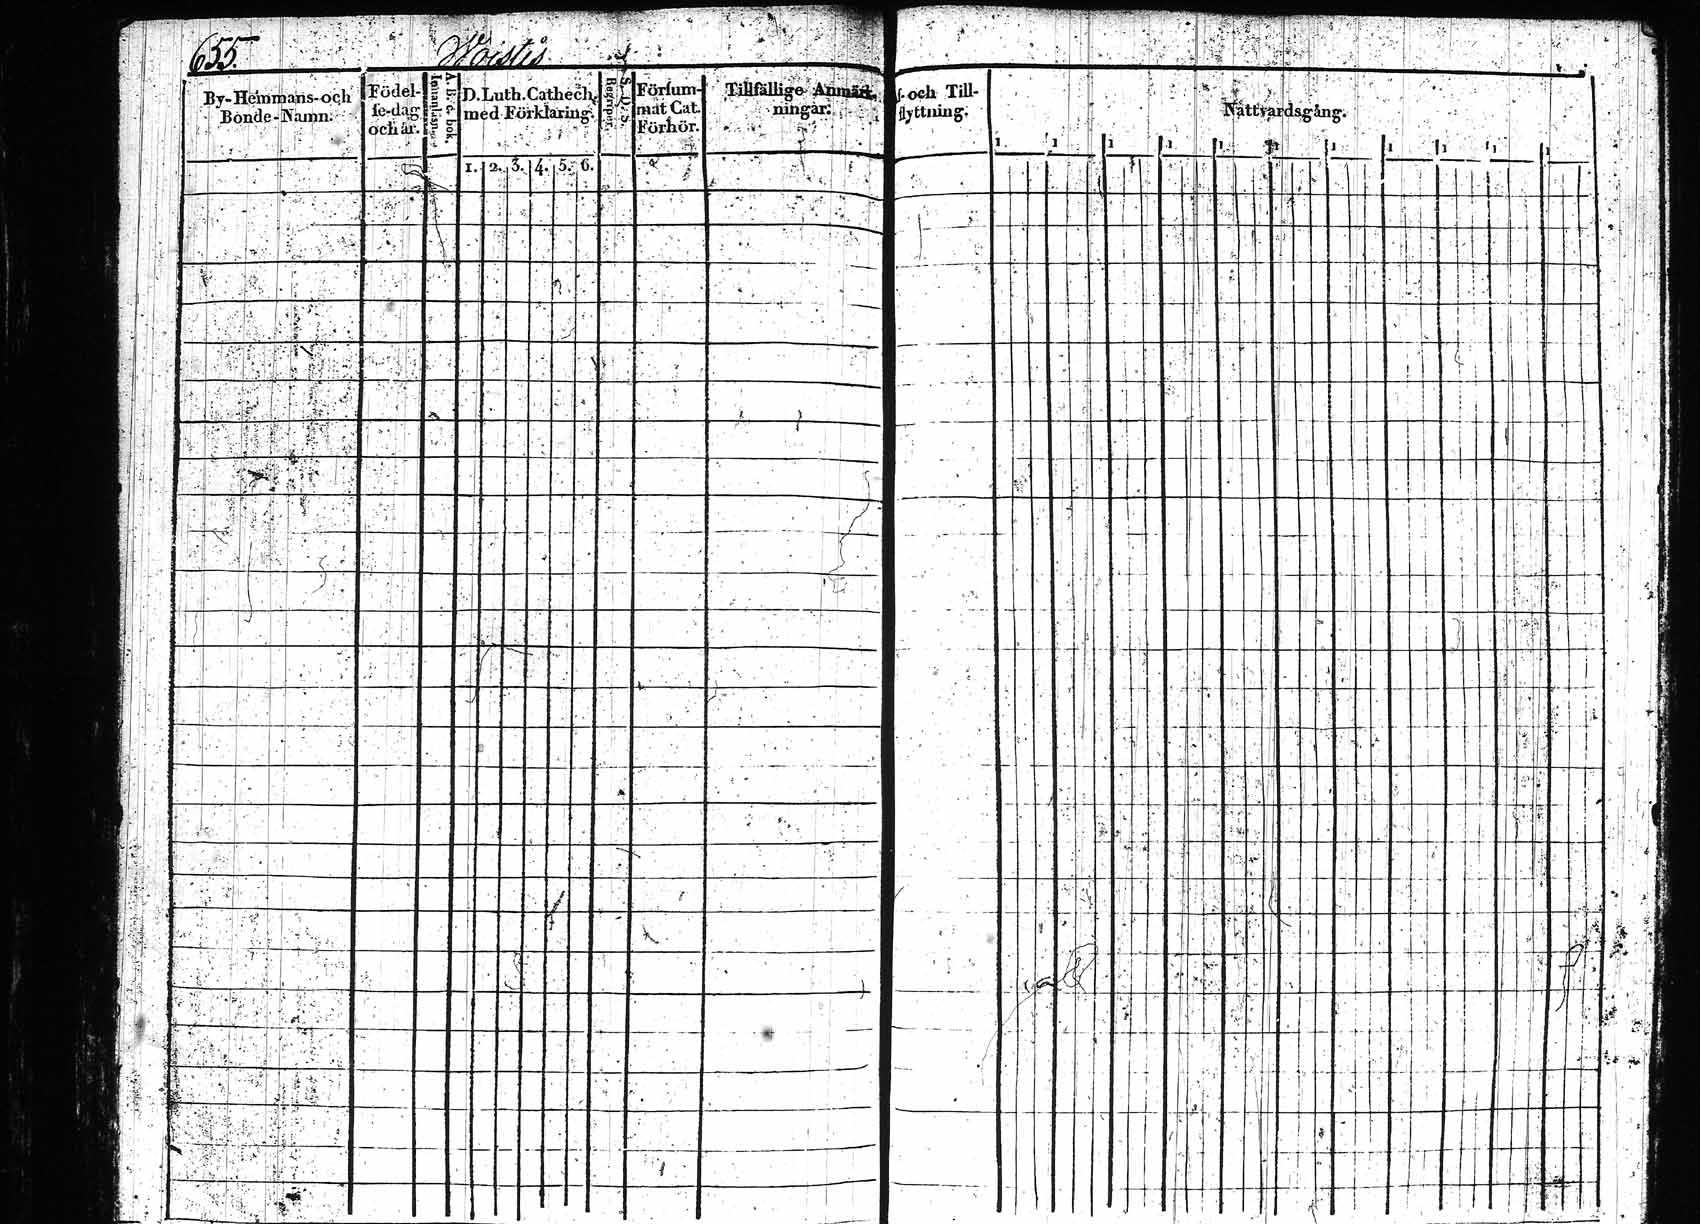 655.
Woistis
By-Hemmans-och
Bonde-Namn.
Födel-
se-dag
och år.
A. B. c. bok.
Innanläsn.
D. Luth. Cathech.
med Förklaring.
1. 2. 3. 4. 5. 6.
S. D. S.
Begriper.
Försum-
mat Cat.
Förhör.
Tillfällige Anmärk-
ningar.
f- och Till-
flyttning.
Nattvardsgång.
1 1 1 1 1 1 1 1 1 1 1